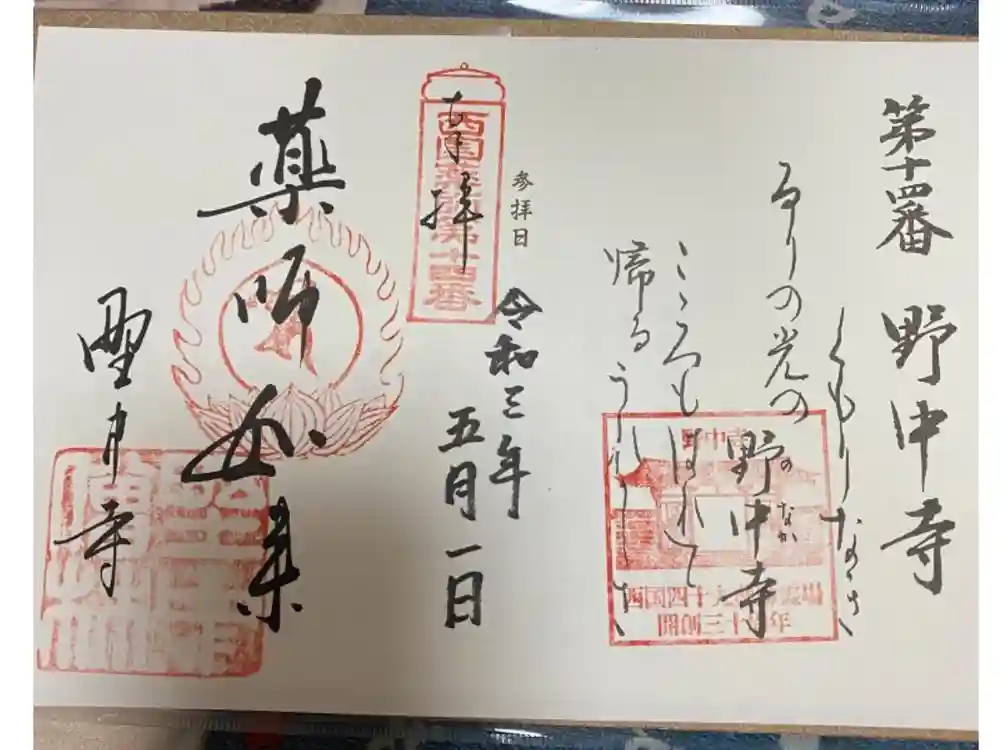 第十四番 野中寺
くもりなき
るりの光の 野中寺
のなか
こゝろもはれて
帰るうれしさ
野中寺
開創三十年
参拝日
令和三年
五月一日
奉拝
西国薬師第十四番
薬師如来
野中寺